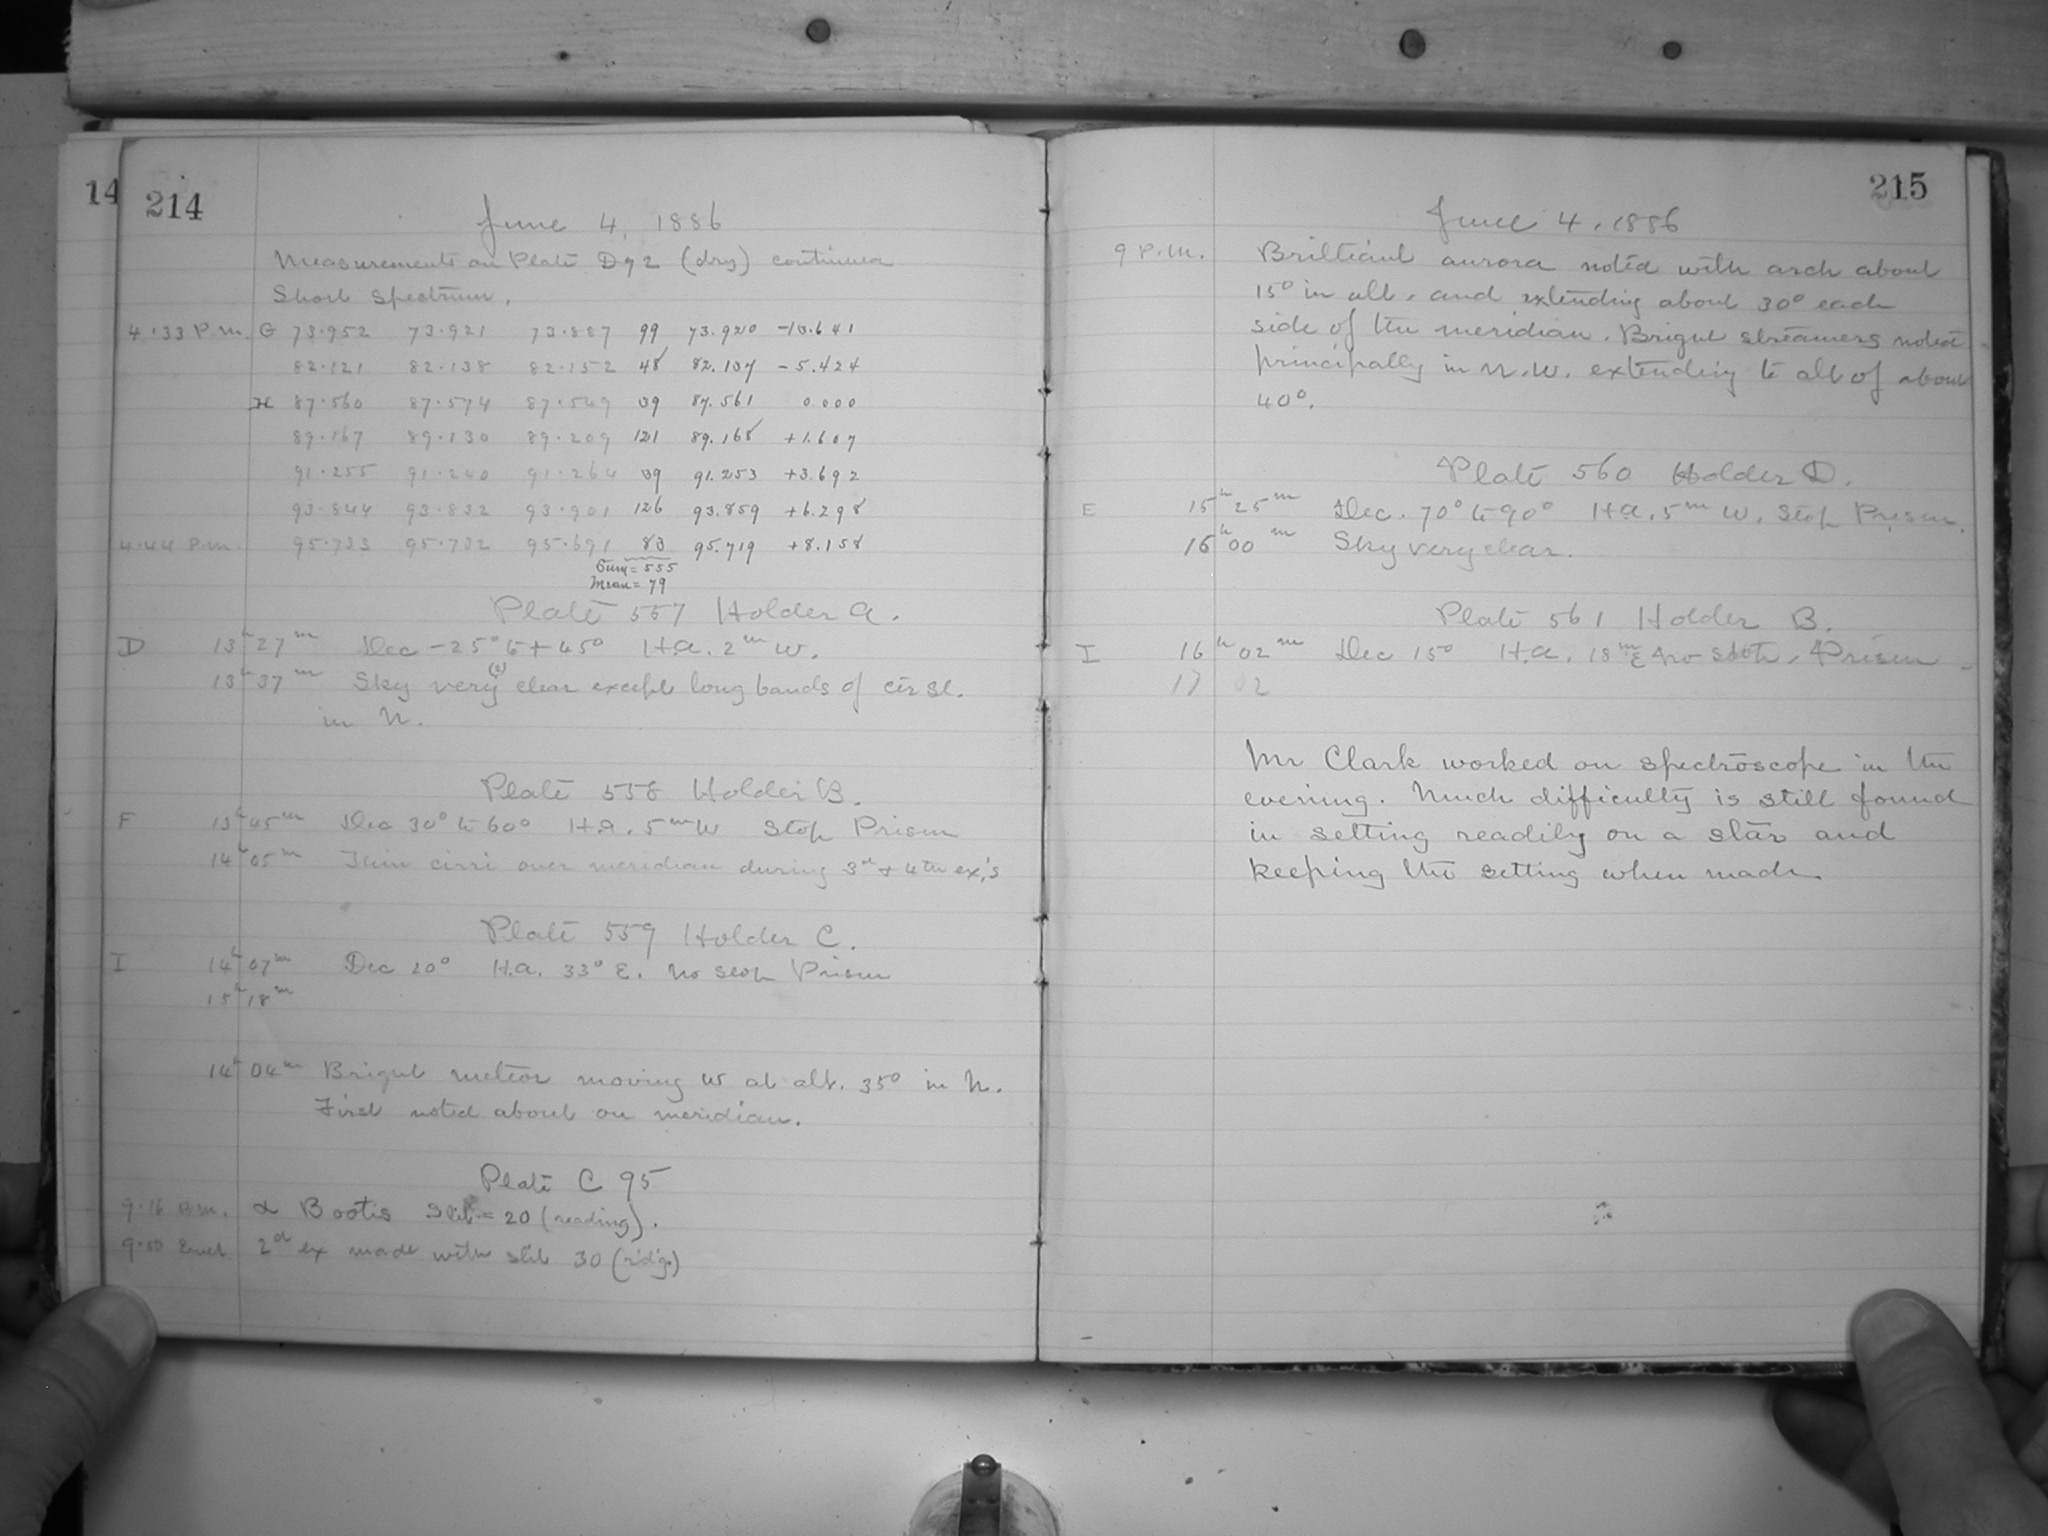 14
214
June 4, 1886
Measurements on Plate D 92 (dry) continued
Short Spectrum.
4.33 P.M. G 73.952 73.921 73.887 99 73.920 -13.641
82.121 82.138 82.152 48 82.137 -5.424
H 87.560 87.574 87.549 39 87.561 0.000
89.167 89.130 89.209 121 89.168 +1.607
91.255 91.240 91.264 39 91.253 +3.692
93.844 93.832 93.901 126 93.859 +6.298
4.44 P.M. 95.733 95.732 95.691 83 95.719 +8.158
Sum = 555
Mean = 79
Plate 557 Holder A.
D 13h 27m Dec -25° to +45° H.A. 2m W.
13h 37m Sky very clear except long bands of cir st.
in N.
Plate 558 Holder B.
F 13h 45m Dec 30° to 60° H.A. 5m W Stop Prism
14h 05m Thin cirri over meridian during 3d + 4th ex's
Plate 559 Holder C.
I 14h 07m Dec 20° H.A. 33° E. No stop Prism
15h 18m
14h 04m Bright meteor moving W at alt. 35° in N.
First noted about on meridian.
Plate C 95
9.16 P.M. α Bootis Slit = 20 (reading).
9.50 End. 2d ex made with slit 30 (r'd'g.)
215
June 4, 1886
9 P.M. Brilliant aurora noted with arch about
15° in alt. and extending about 30° each
side of the meridian. Bright streamers noted
principally in N.W. extending to alt of about
40°.
Plate 560 Holder D.
E 15h 25m Dec. 70° to 90° H.A. 5m W. Stop Prism.
16h 00m Sky very clear.
Plate 561 Holder B.
I 16h 02m Dec 15° H.A. 18m E No Stop, Prism
17 02
Mr Clark worked on spectroscope in the
evening. Much difficulty is still found
in setting readily on a star and
keeping the setting when made.